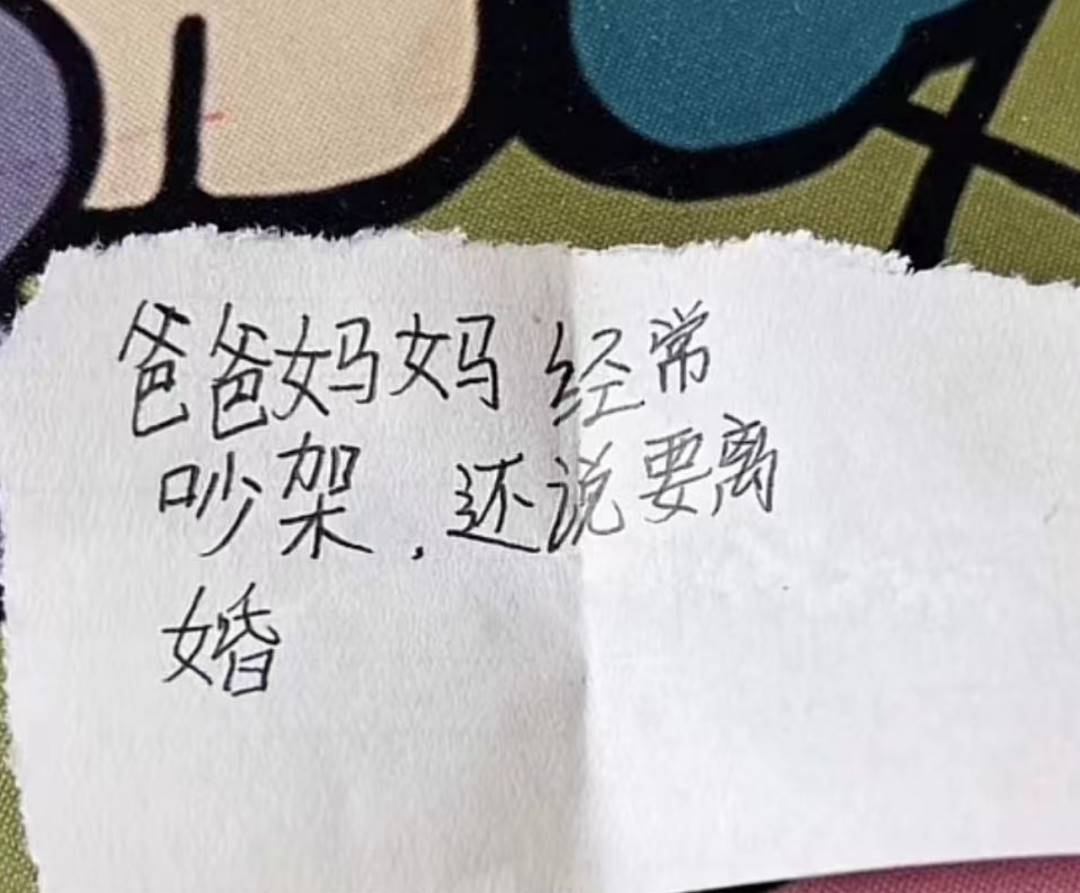 爸爸妈妈经常
吵架,还说要离
婚